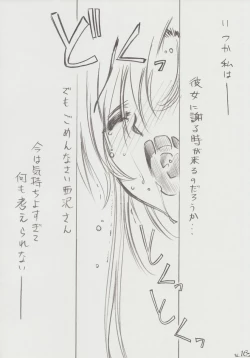 いつか私は――
彼女に謝る時が来るのだろうか…
どくん
でもごめんなさい西沢さん
今は気持ちよすぎて
何も考えられない――
どくっ
どくっ